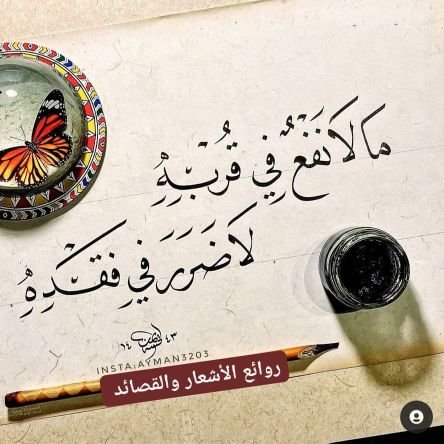 مَا لَا نَفْعٌ فِي قُرْبِهِ
لَا ضَرَرَ فِي فَقْدِهِ
INSTA:AYMAN3203
روائع الأشعار والقصائد